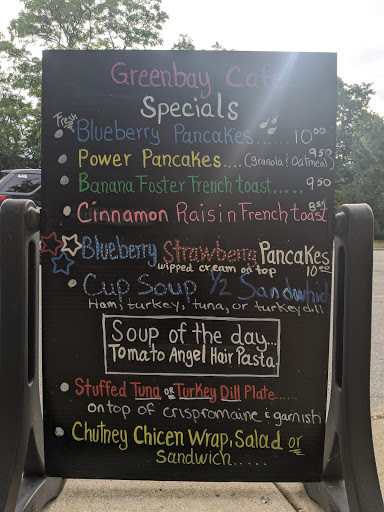 Greenbay Cafe
Specials
Fresh
Blueberry Pancakes...... 10.00
Power Pancakes.... (granola & Oatmeal) 9.50
Banana Foster French toast..... 9.50
Cinnamon Raisin French toast 8.50
Blueberry Strawberry Pancakes
wipped cream on top 10.00
Cup Soup 1/2 Sandwhid
Ham, turkey, tuna, or turkey dill
Soup of the day...
Tomato Angel Hair Pasta
Stuffed Tuna or Turkey Dill Plate......
on top of crispromaine & garnish
Chutney Chicen Wrap, Salad or
Sandwich.....